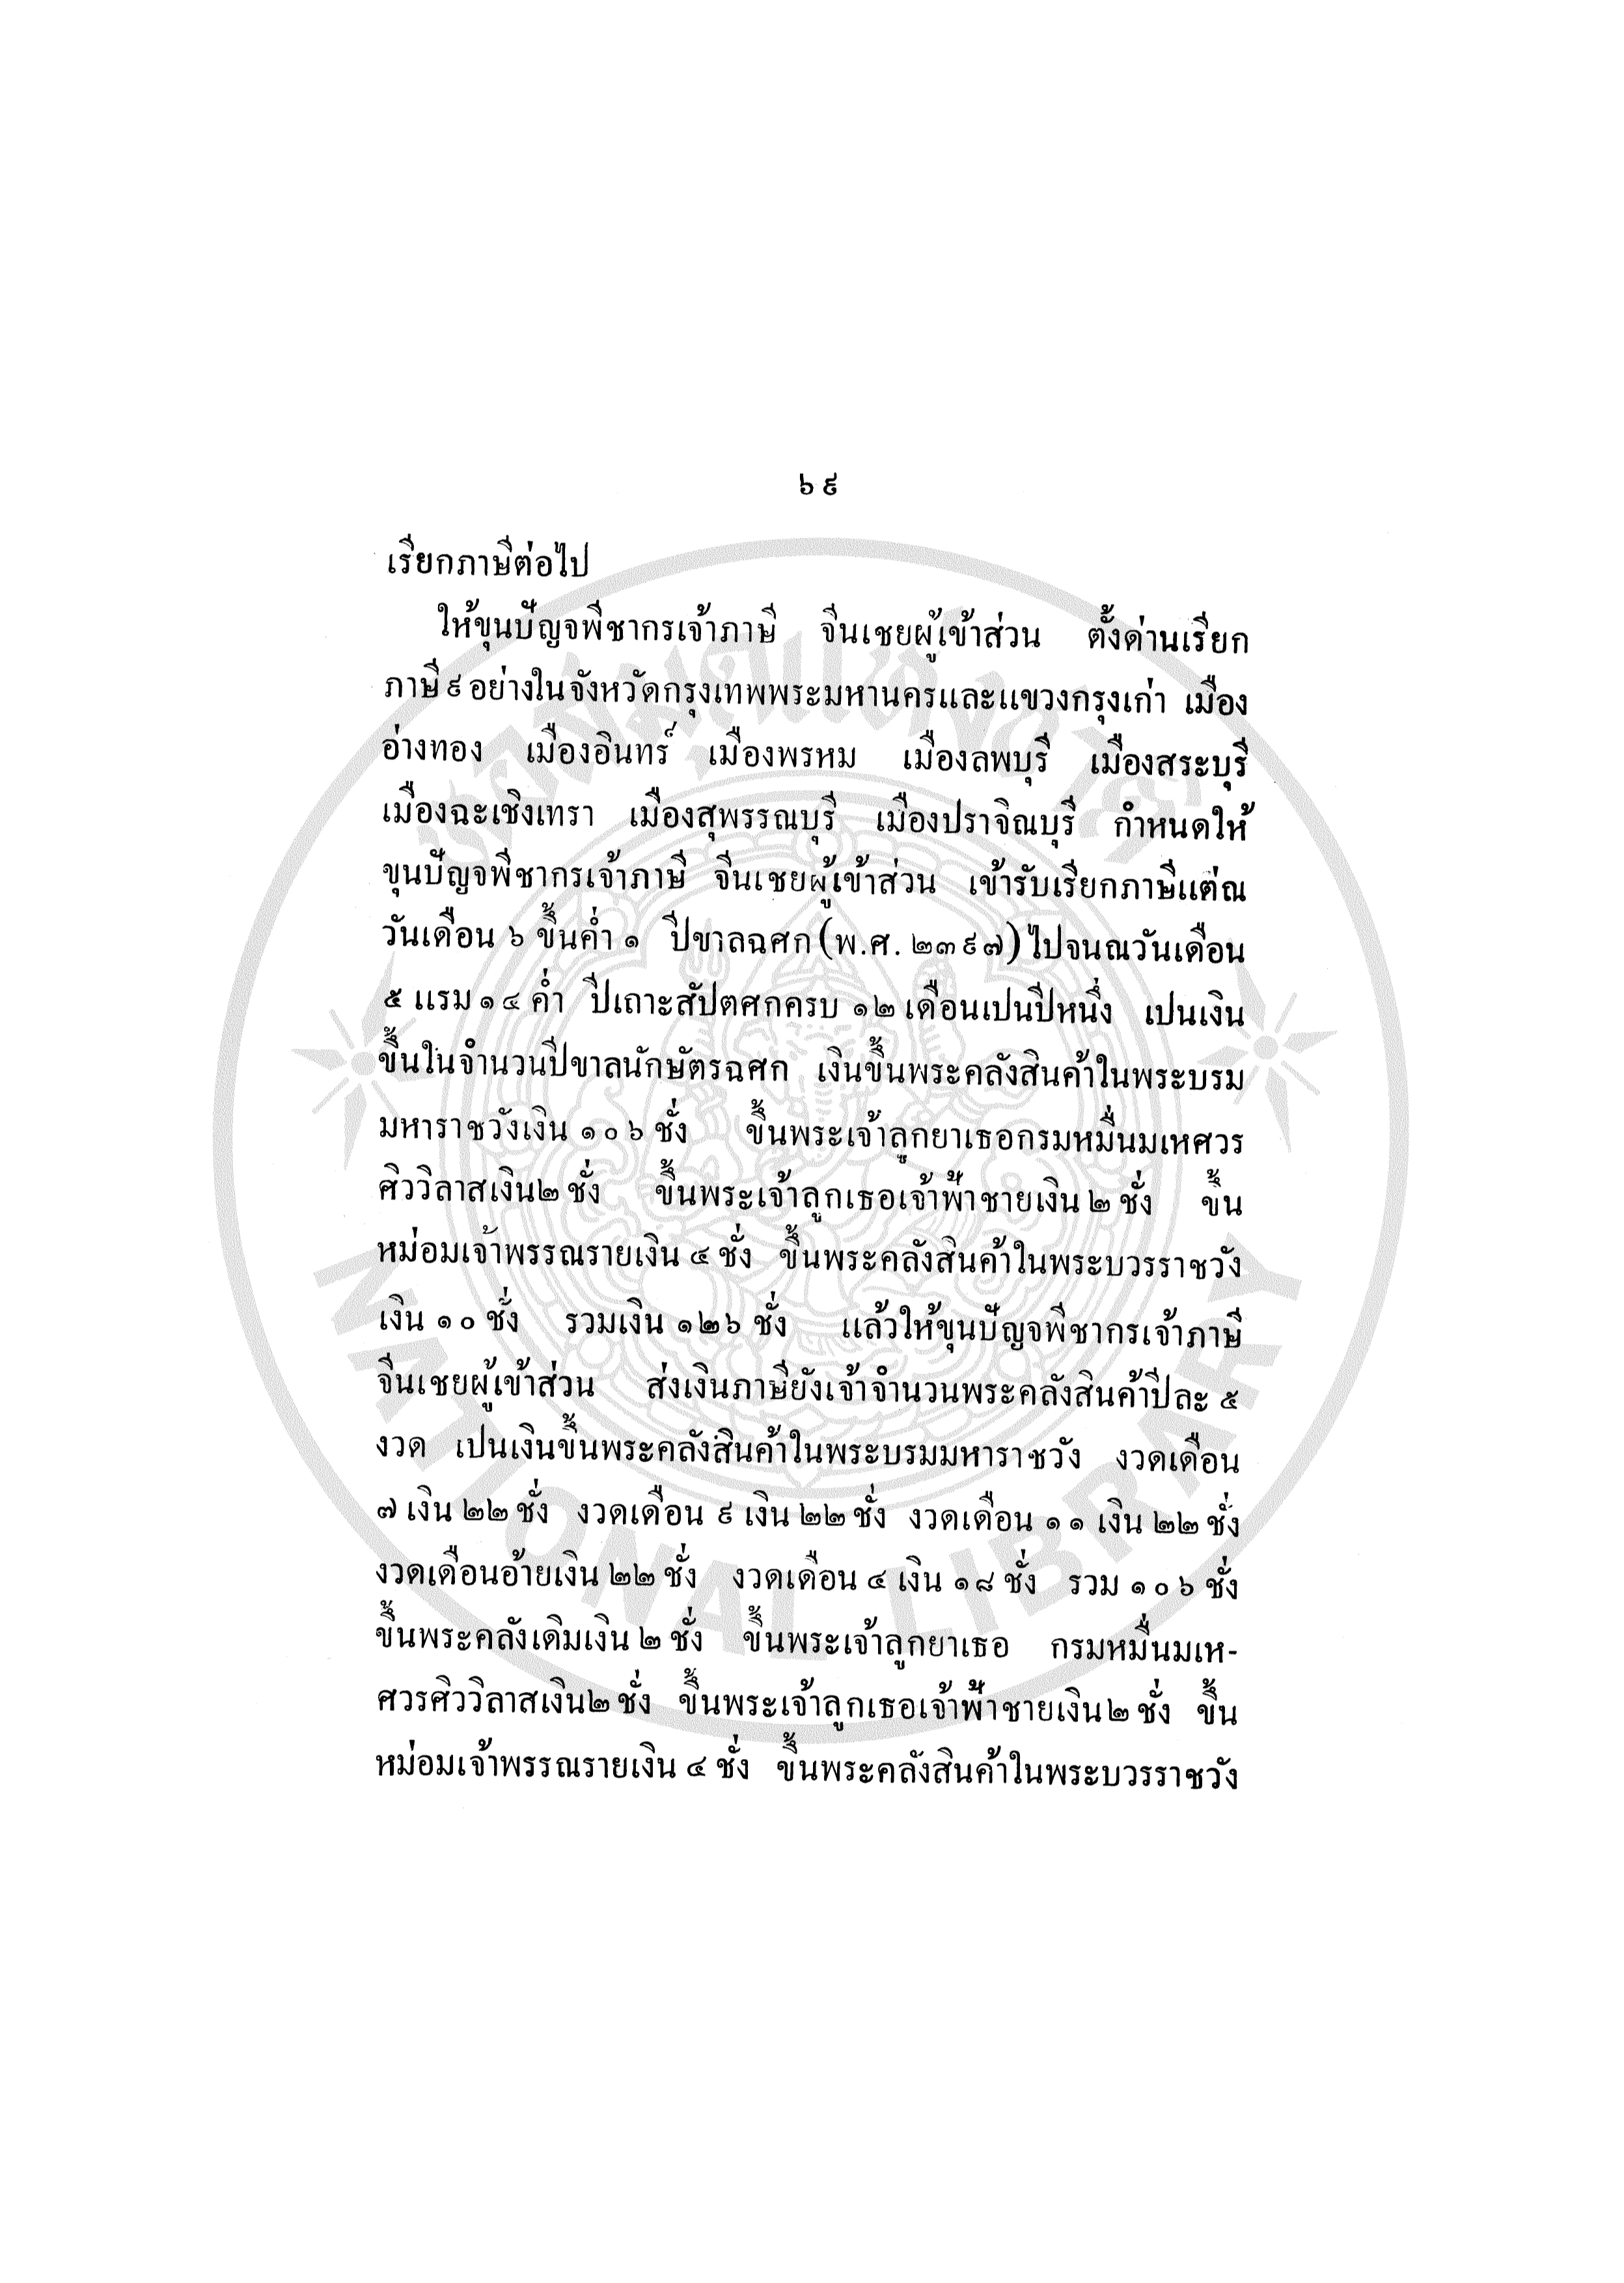 ๖๙
เรียกภาษีต่อไป
ให้ขุนปัญจพืชากรเจ้าภาษี จีนเชยผู้เข้าส่วน ตั้งด่านเรียก
ภาษี ๙ อย่างในจังหวัดกรุงเทพพระมหานครและแขวงกรุงเก่า เมือง
อ่างทอง เมืองอินทร์ เมืองพรหม เมืองลพบุรี เมืองสระบุรี
เมืองฉะเชิงเทรา เมืองสุพรรณบุรี เมืองปราจิณบุรี กำหนดให้
ขุนปัญจพืชากรเจ้าภาษี จีนเชยผู้เข้าส่วน เข้ารับเรียกภาษีแต่ณ
วันเดือน ๖ ขึ้นค่ำ ๑ ปีขาลฉศก (พ.ศ. ๒๓๙๗) ไปจนณวันเดือน
๕ แรม ๑๔ ค่ำ ปีเถาะสัปตศกครบ ๑๒ เดือนเปนปีหนึ่ง เปนเงิน
ขึ้นในจำนวนปีขาลนักษัตรฉศก เงินขึ้นพระคลังสินค้าในพระบรม
มหาราชวังเงิน ๑๐๖ ชั่ง ขึ้นพระเจ้าลูกยาเธอกรมหมื่นมเหศวร
ศิววิลาสเงิน ๒ ชั่ง ขึ้นพระเจ้าลูกเธอเจ้าฟ้าชายเงิน ๒ ชั่ง ขึ้น
หม่อมเจ้าพรรณรายเงิน ๔ ชั่ง ขึ้นพระคลังสินค้าในพระบวรราชวัง
เงิน ๑๐ ชั่ง รวมเงิน ๑๒๖ ชั่ง แล้วให้ขุนปัญจพืชากรเจ้าภาษี
จีนเชยผู้เข้าส่วน ส่งเงินภาษียังเจ้าจำนวนพระคลังสินค้าปีละ ๕
งวด เปนเงินขึ้นพระคลังสินค้าในพระบรมมหาราชวัง งวดเดือน
๗ เงิน ๒๒ ชั่ง งวดเดือน ๙ เงิน ๒๒ ชั่ง งวดเดือน ๑๑ เงิน ๒๒ ชั่ง
งวดเดือนอ้ายเงิน ๒๒ ชั่ง งวดเดือน ๔ เงิน ๑๘ ชั่ง รวม ๑๐๖ ชั่ง
ขึ้นพระคลังเดิมเงิน ๒ ชั่ง ขึ้นพระเจ้าลูกยาเธอ กรมหมื่นมเห-
ศวรศิววิลาสเงิน ๒ ชั่ง ขึ้นพระเจ้าลูกเธอเจ้าฟ้าชายเงิน ๒ ชั่ง ขึ้น
หม่อมเจ้าพรรณรายเงิน ๔ ชั่ง ขึ้นพระคลังสินค้าในพระบวรราชวัง
หอสมุดแห่งชาติ
NATIONAL LIBRARY